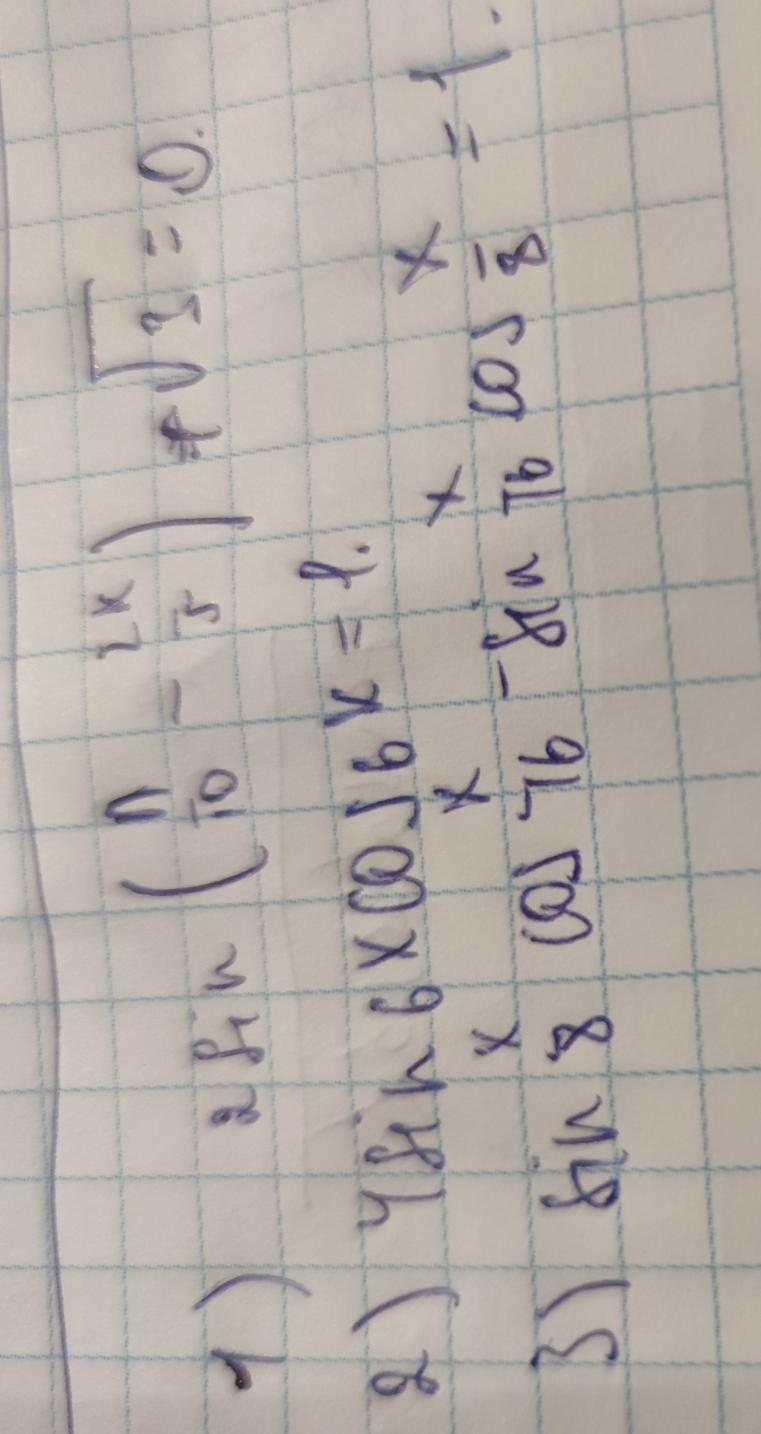 1) 2 sin (π/10 - 2x/5) + √3 = 0.
2) 4 sin 6x cos 6x = 1.
3) sin x/8 cos x/16 - sin x/16 cos x/8 = 1.